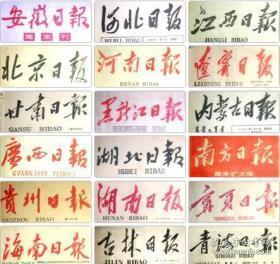 安徽日报
周末刊
河北日报
HEBEI RIBAO
江西日报
JIANGXI RIBAO
北京日报
河南日报
HENAN RIBAO
辽宁日报
LIAONING RIBAO
甘肃日报
GANSU RIBAO
黑龙江日报
内蒙古日报
广西日报
GUANGSIH YIZBAU
湖北日报
HUBEI RIBAO
南方日报
周末扩大版
贵州日报
GUIZHOU RIBAO
湖南日报
HUNAN RIBAO
宁夏日报
NINGXIA RIBAO
海南日报
吉林日报
JILIN RIBAO
青海日报